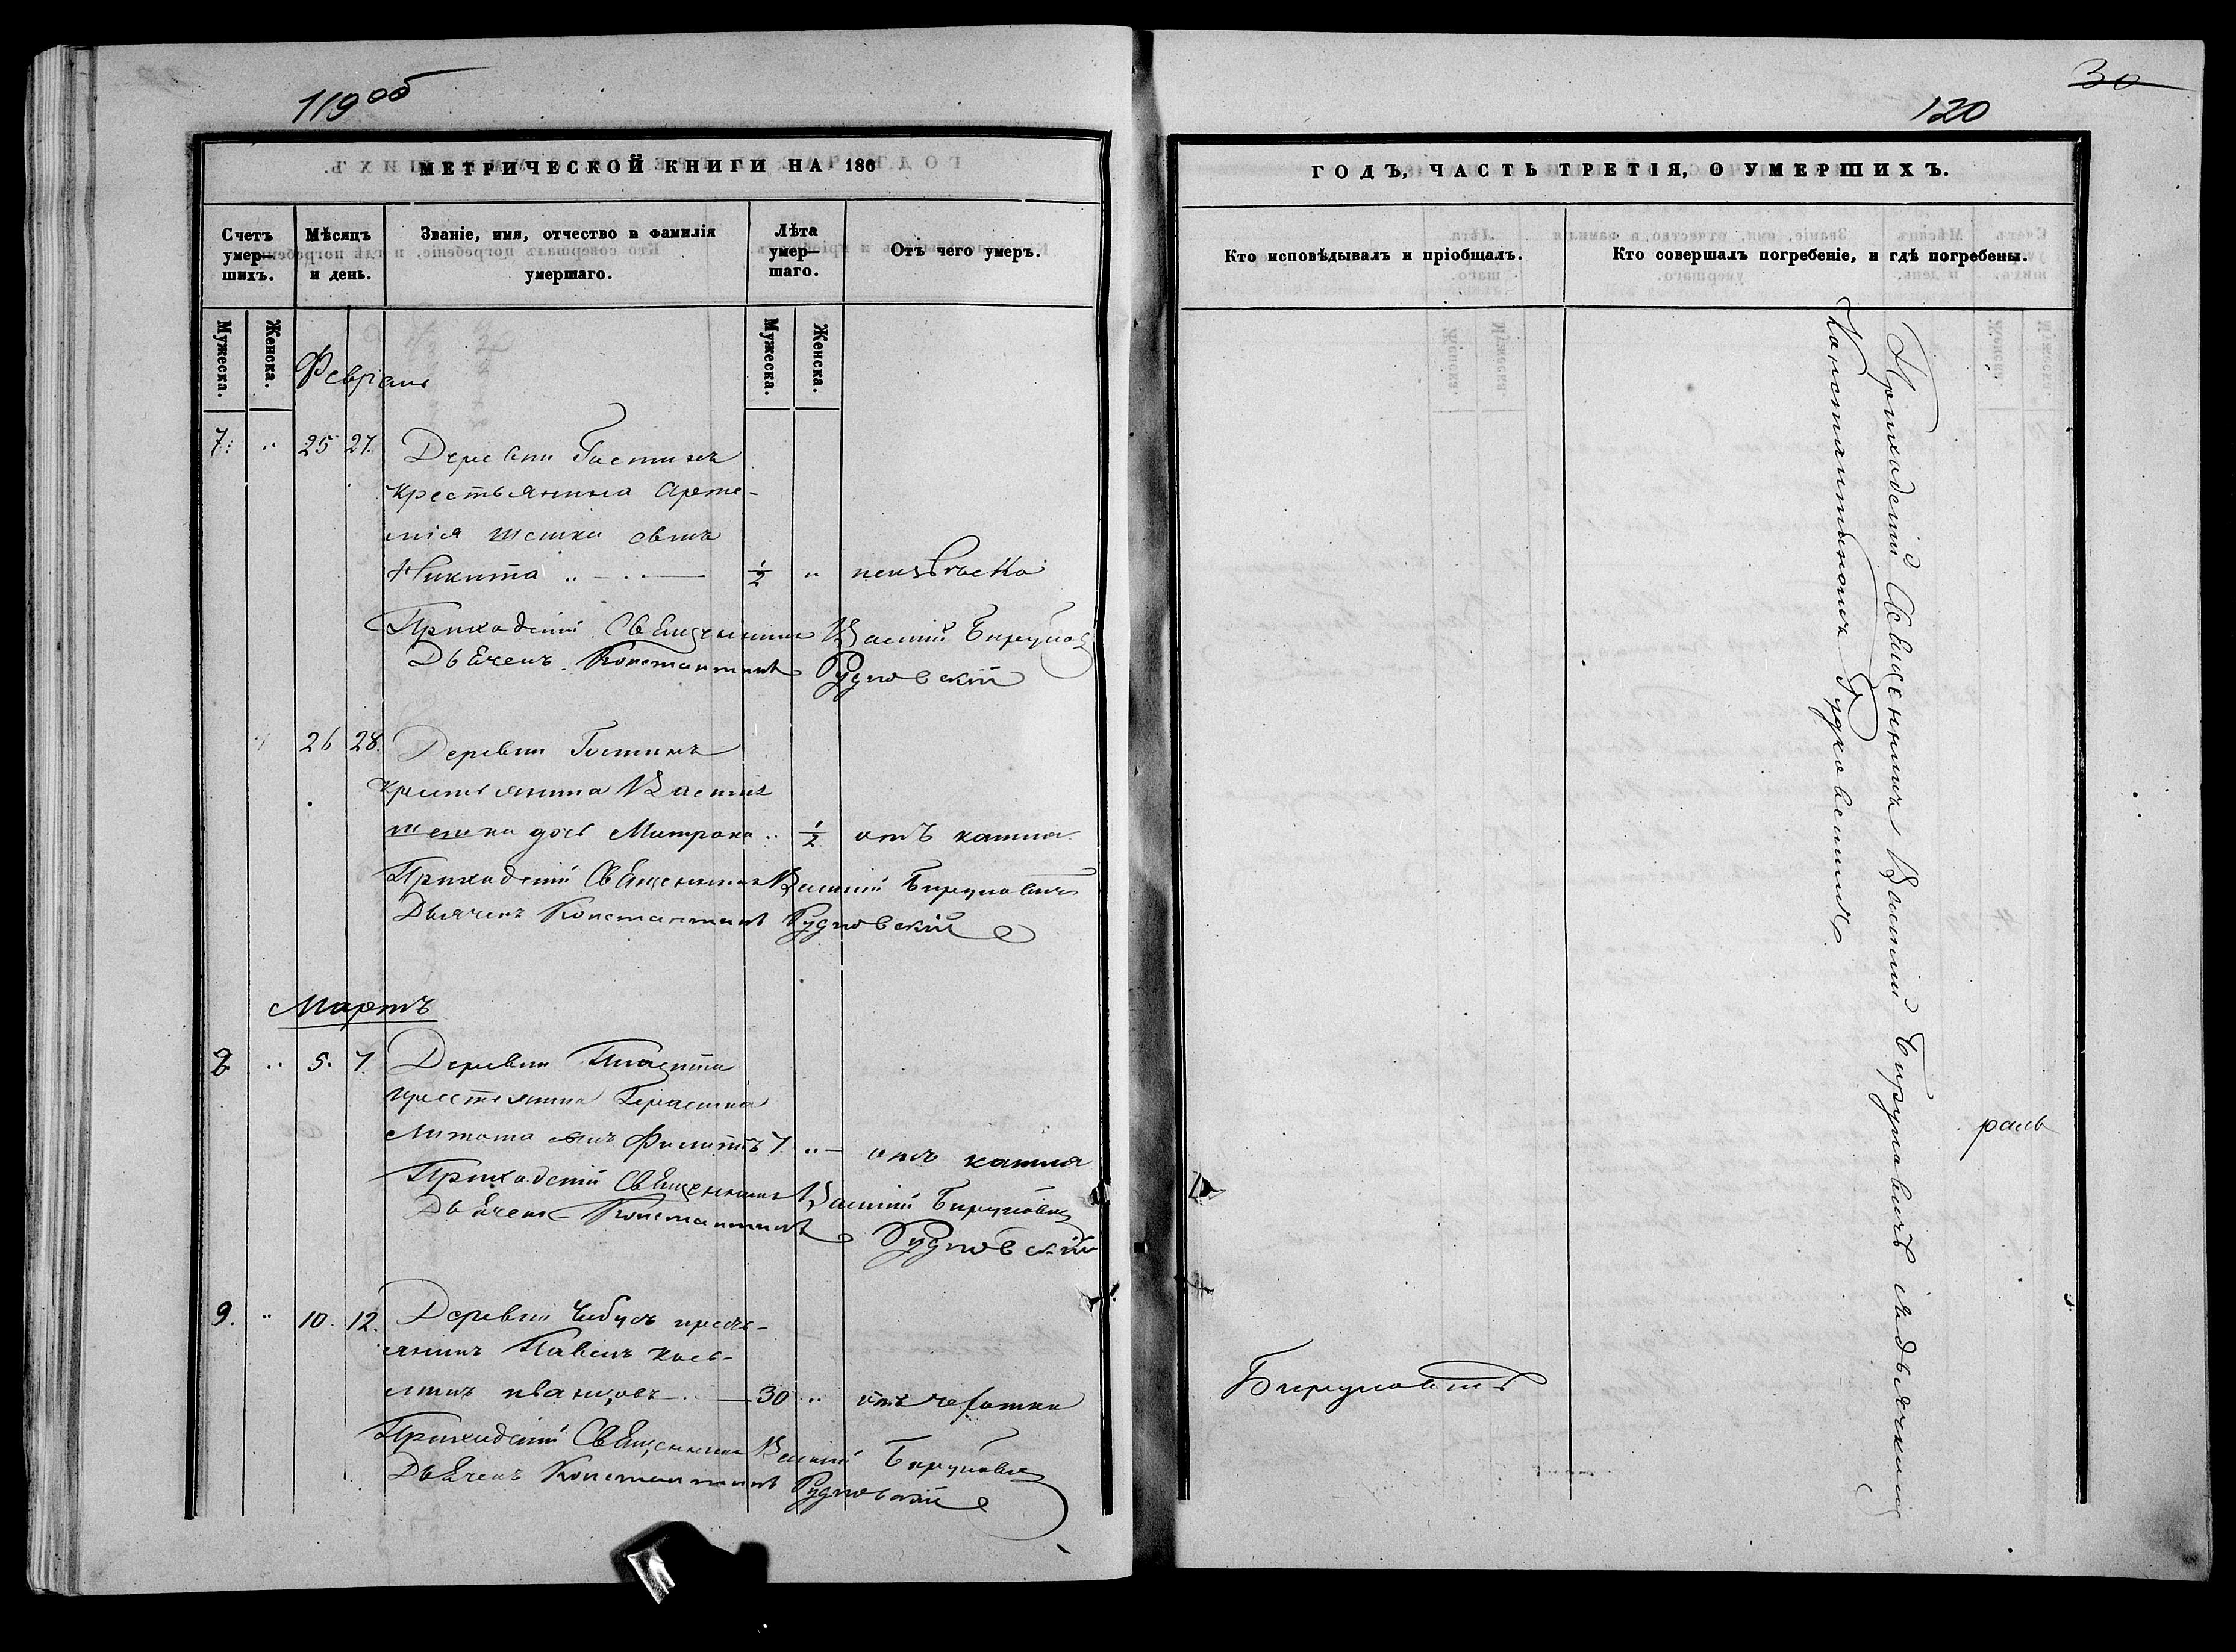 119 об
МЕТРИЧЕСКОЙ КНИГИ НА 186
Счетъ умер-шихъ.
Мѣсяцъ и день.
Званіе, имя, отчество и фамилія умершаго.
Лѣта умер-шаго.
Отъ чего умеръ.
Мужеска.
Женска.
Мужеска.
Женска.
Февраль
7. " 25 27. Деревни
крестьянина Арте-
мія сынъ
Никита 1/2 " неизвѣстно
Приходскій Священникъ Василій Бируковичъ
Дьячекъ Константинъ Рудковскій
" 26 28. Деревни
крестьянина Василія
дочь Матрона " 1/2 отъ кашля
Приходскій Священникъ Василій Бируковичъ
Дьячекъ Константинъ Рудковскій
Мартъ
8 " 5. 7. Деревни
крестьянина Герасима
сынъ Филиппъ 7. " отъ кашля
Приходскій Священникъ Василій Бируковичъ
Дьячекъ Константинъ Рудковскій
9. " 10. 12. Деревни кресть-
янинъ Павелъ
30 " отъ чахотки
Приходскій Священникъ Василій Бируковичъ
Дьячекъ Константинъ Рудковскій
30
120
ГОДЪ, ЧАСТЬ ТРЕТІЯ, О УМЕРШИХЪ.
Кто исповѣдывалъ и пріобщалъ.
Кто совершалъ погребеніе, и гдѣ погребены.
Приходскій Священникъ Василій Бируковичъ съ дьячкомъ
Константиномъ Рудковскимъ
раль
Бируковичъ